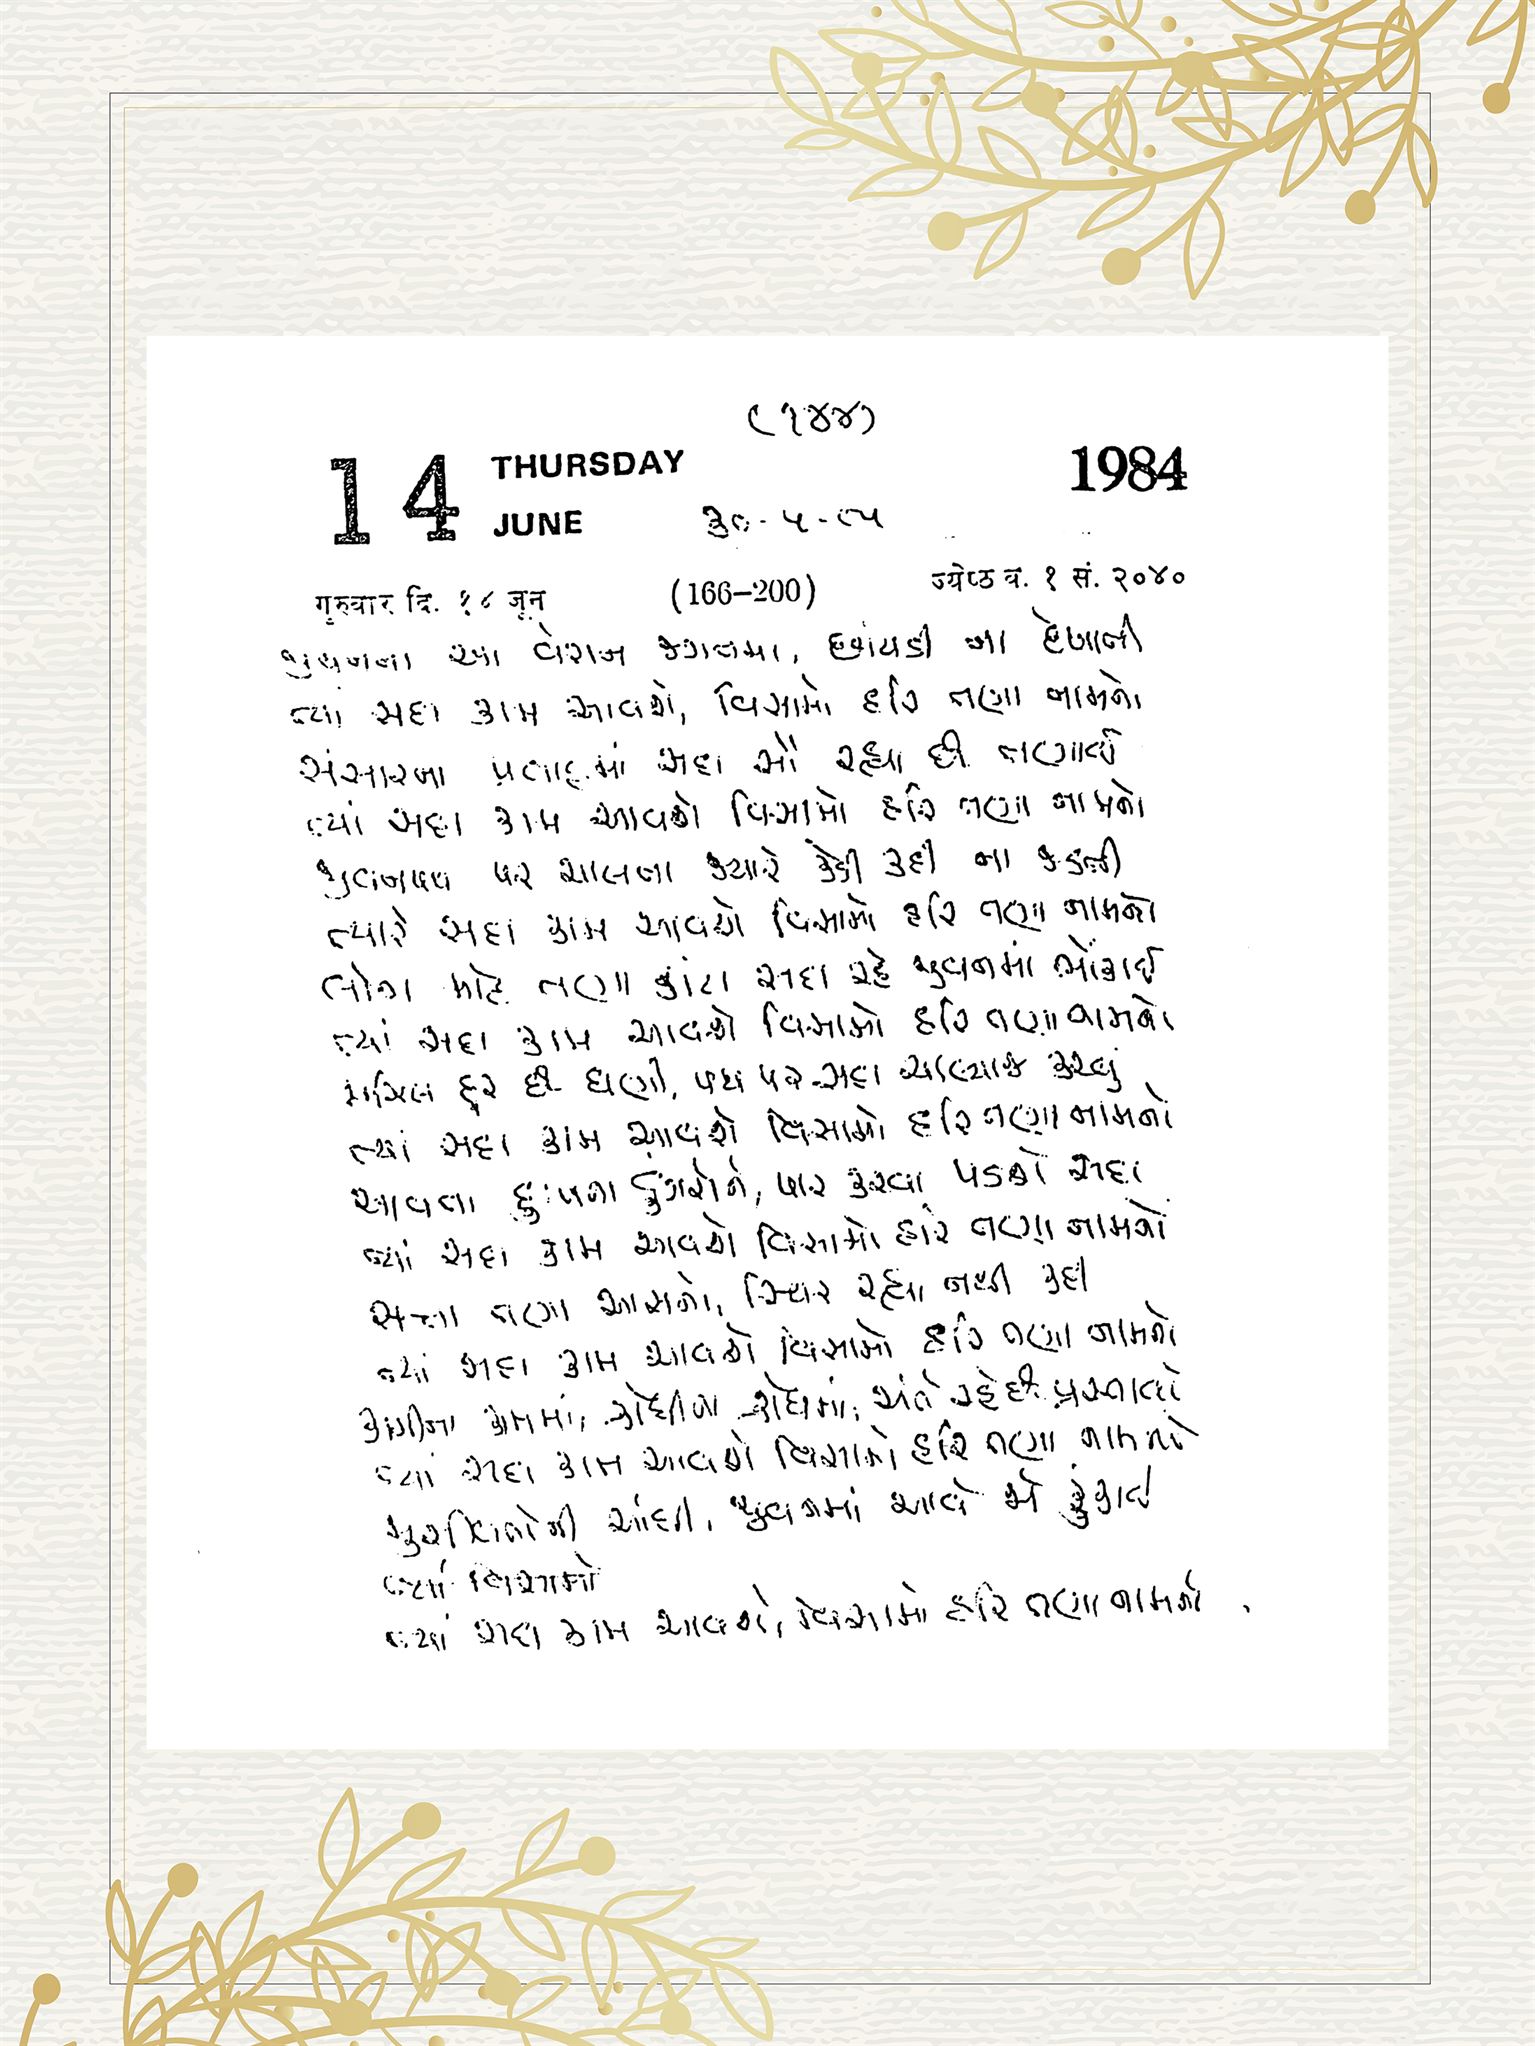 (૧૪૪)
14 THURSDAY 1984
JUNE ૩૦-૫-૮૫
गुरुवार दि. १४ जून (166–200) ज्येष्ठ व. १ सं. २०४०
જીવનના આ વેરાન જગતમા, છાંયડી ના દેખાતી
ત્યાં સદા કામ આવશે, વિસામો હરિ તણા નામનો
સંસારના પ્રવાહમાં સદા સૌ રહ્યા છી તણાઈ
ત્યાં સદા કામ આવશે વિસામો હરિ તણા નામનો
જીવનપથ પર ચાલતા ક્યારે કેડી કદી ના જડતી
ત્યારે સદા કામ આવશે વિસામો હરિ તણા નામનો
લોભ મોહ તણા કાંટા સદા રહે જીવનમાં ભોંકાઈ
ત્યાં સદા કામ આવશે વિસામો હરિ તણા નામનો
મંઝિલ દૂર છી ઘણી, પથ પર સદા ચાલ્યાજ કરવું
ત્યાં સદા કામ આવશે વિસામો હરિ તણા નામનો
આવતા દુઃખના ડુંગરોને, પાર કરવા પડશે સદા
ત્યાં સદા કામ આવશે વિસામો હરિ તણા નામનો
સત્તા તણા આસનો, સ્થિર રહ્યા નથી કદી
ત્યાં સદા કામ આવશે વિસામો હરિ તણા નામનો
કામીના કામમાં, ક્રોધીના ક્રોધમાં, અંતે રહે છી પસ્તાવો
ત્યાં સદા કામ આવશે વિસામો હરિ તણા નામનો
મુરસીબતોની આંધી, જીવનમાં આવે જો ફૂંકાઈ
ત્યાં વિસામો
ત્યાં સદા કામ આવશે, વિસામો હરિ તણા નામનો.